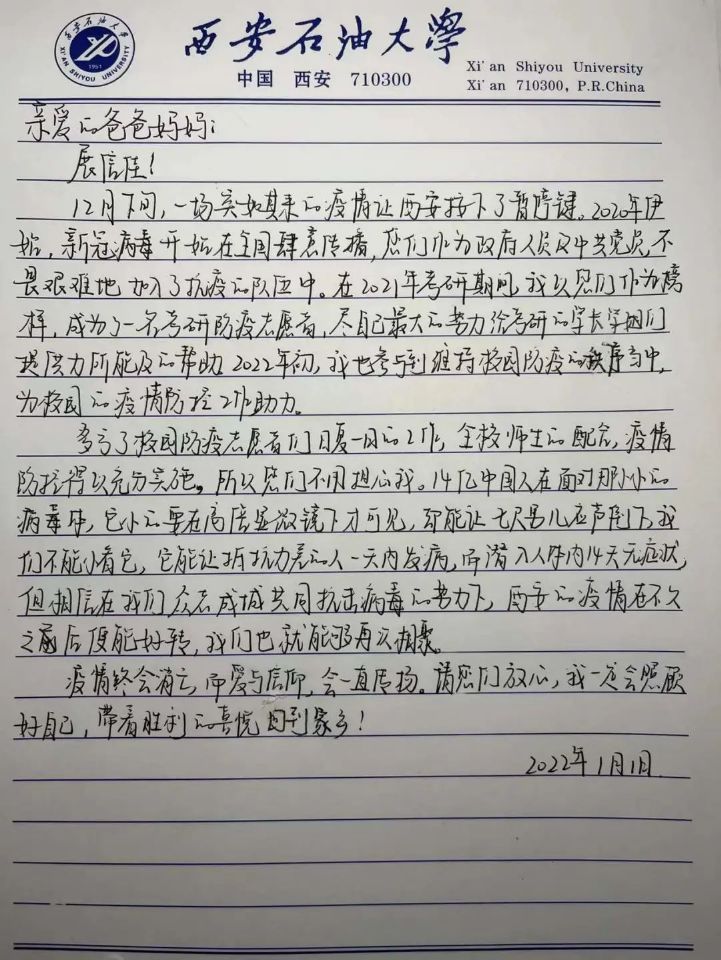 西安石油大學
XI'AN SHIYOU UNIVERSITY
1951
西安石油大學
中国 西安 710300
Xi'an Shiyou University
Xi'an 710300, P.R.China
亲爱的爸爸妈妈：
展信佳！
12月下间，一场突如其来的疫情让西安按下了暂停键。2020年伊
始，新冠病毒开始在全国肆意传播，您们作为政府人员及中共党员，不
畏艰难地加入了抗疫的队伍中。在2021年考研期间，我以您们作为榜
样，成为了一名考研防疫志愿者，尽自己最大的努力给考研的学长学姐们
提供力所能及的帮助。2022年初，我也参与到维持校园防疫的秩序当中，
为校园的疫情防控工作助力。
多亏了校园防疫志愿者们日复一日的工作，全校师生的配合，疫情
防控得以充分实施。所以您们不用担心我。14亿中国人在面对那小小的
病毒时，它小的要在高倍显微镜下才可见，却能让七尺男儿应声倒下，我
们不能小看它，它能让抵抗力差的人一天内发病，而潜入人体内14天无症状，
但相信在我们众志成城共同抗击病毒的努力下，西安的疫情在不久
之后便能好转，我们也就能够再次相聚。
疫情终会消亡，而爱与信仰，会一直传扬。请您们放心，我一定会照顾
好自己，带着胜利的喜悦回到家乡！
2022年1月1日